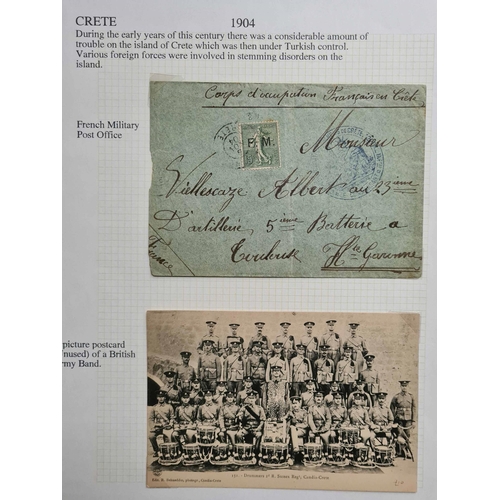 CRETE 1904
During the early years of this century there was a considerable amount of
trouble on the island of Crete which was then under Turkish control.
Various foreign forces were involved in stemming disorders on the
island.
Corps d'occupation Français en Crète
French Military
Post Office
F.M.
Monsieur
Vieillescaze Albert au 23ième
D'artillerie 5ième Batterie a
Toulouse Hte Garonne
France
picture postcard
nused) of a British
rmy Band.
Drummers
R. Sussex Regt, Candia-Crete